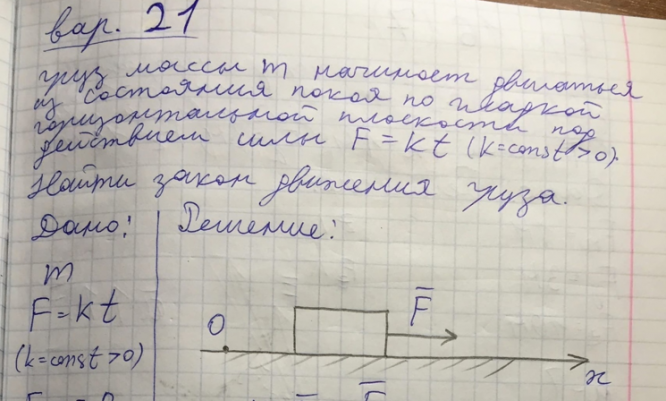 вар. 21
груз массы m начинает двигаться
из состояния покоя по гладкой
горизонтальной плоскости под
действием силы F = kt (k=const>0).
Найти закон движения груза.
Дано: Решение:
m
F = kt
(k=const>0)
F̅
O
x
F̅